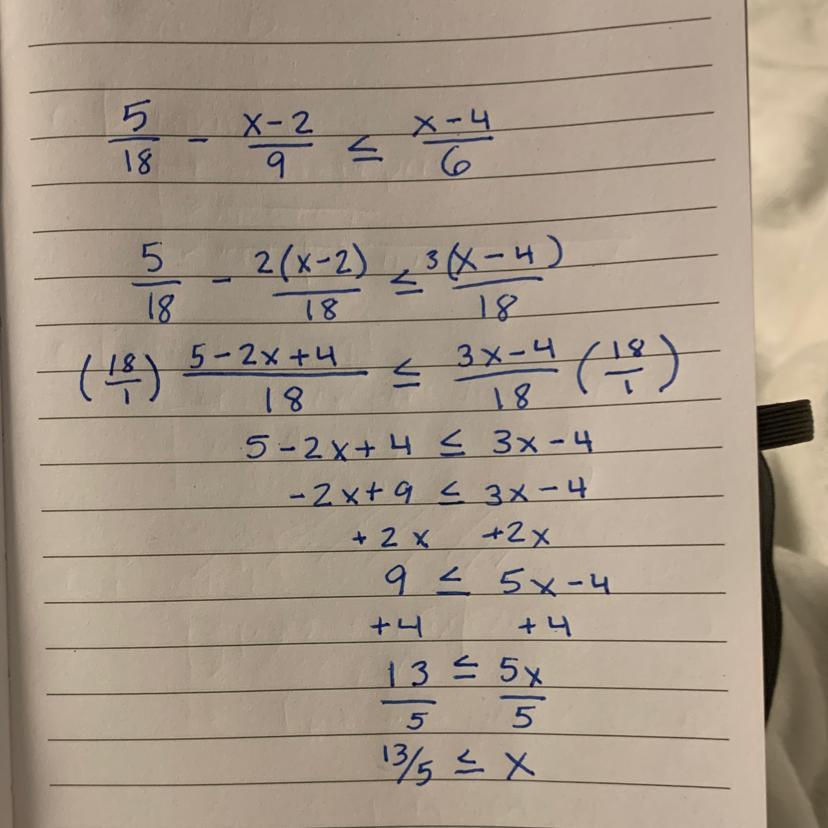 5/18 - x-2/9 ≤ x-4/6
5/18 - 2(x-2)/18 ≤ 3(x-4)/18
(18/1) 5-2x+4/18 ≤ 3x-4/18 (18/1)
5-2x+4 ≤ 3x-4
-2x+9 ≤ 3x-4
+2x +2x
9 ≤ 5x-4
+4 +4
13/5 ≤ 5x/5
13/5 ≤ x